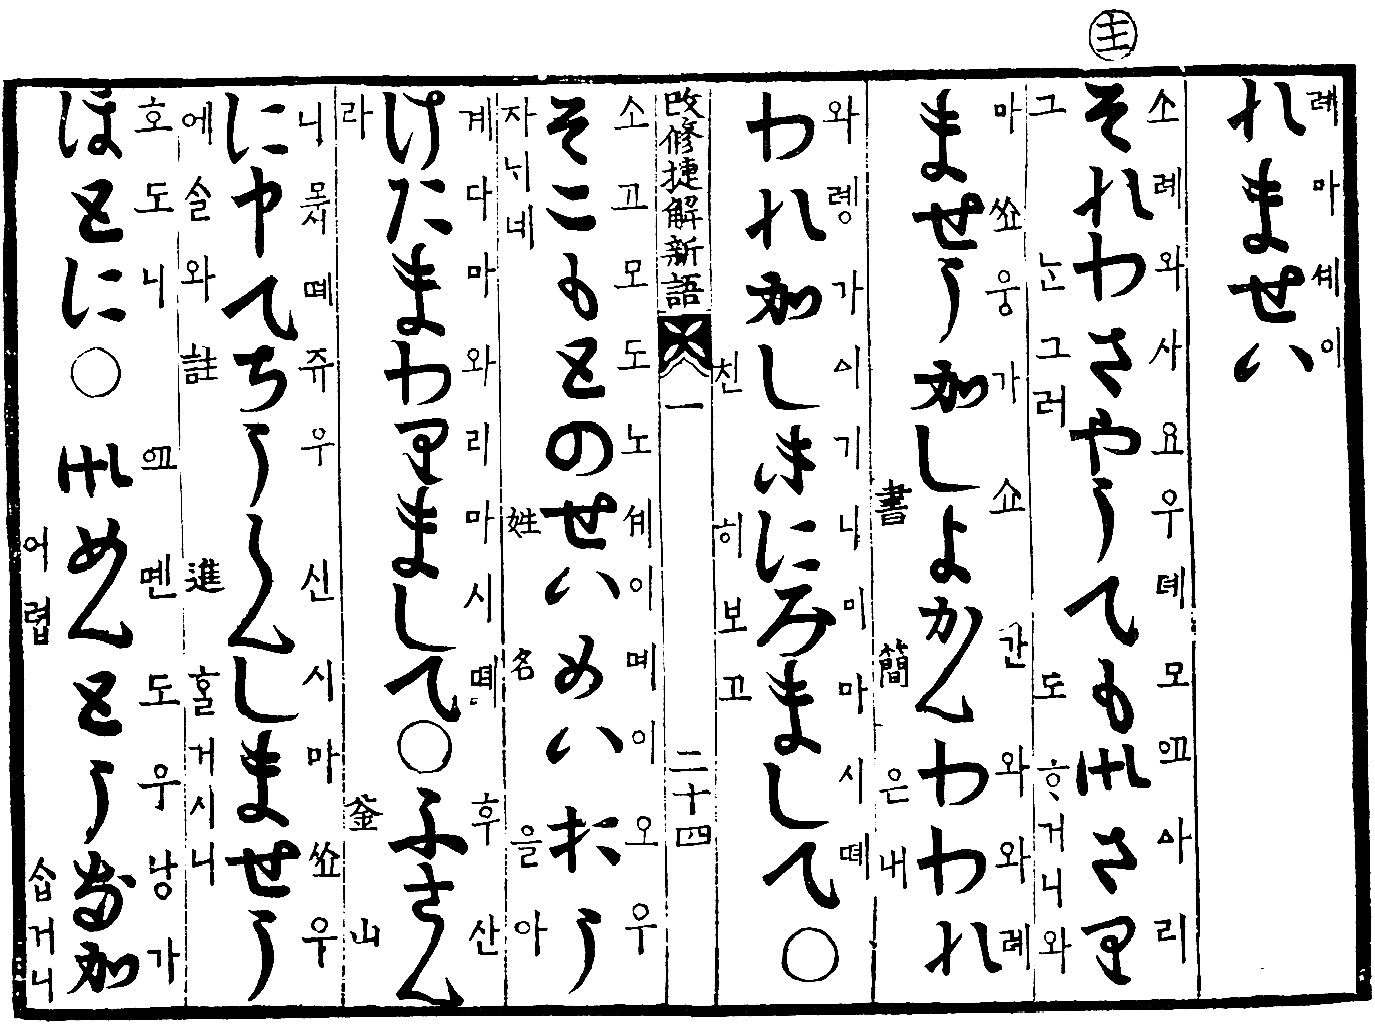 主
れませい
례마셰이
それわさやうても御さり
소례와사요우뎨모ᅀᅡ리
그ᄂᆞᆫ그러도ᄒᆞ거니와
ませうかしよかんわわれ
마쑈우ᇰ가쇼간와와례
書簡은내
われかしきにみまして○
와례ᇰ가ᅀᅵ기니미마시뗴
친히보고
改修捷解新語 一 二十四
そこもとのせいめいおう
소고모도노셰이몌이오우
자ᄂᆡ네姓名을아
けたまわりまして○ふさん
계다마와리마시뗴후산
라釜山
にやてちうしんしませう
니뫃시뗴쥬우신시마쑈우
에솔와註進홀거시니
ほとに○御めんとうなか
호도니몐도우낭가
어렵습거니